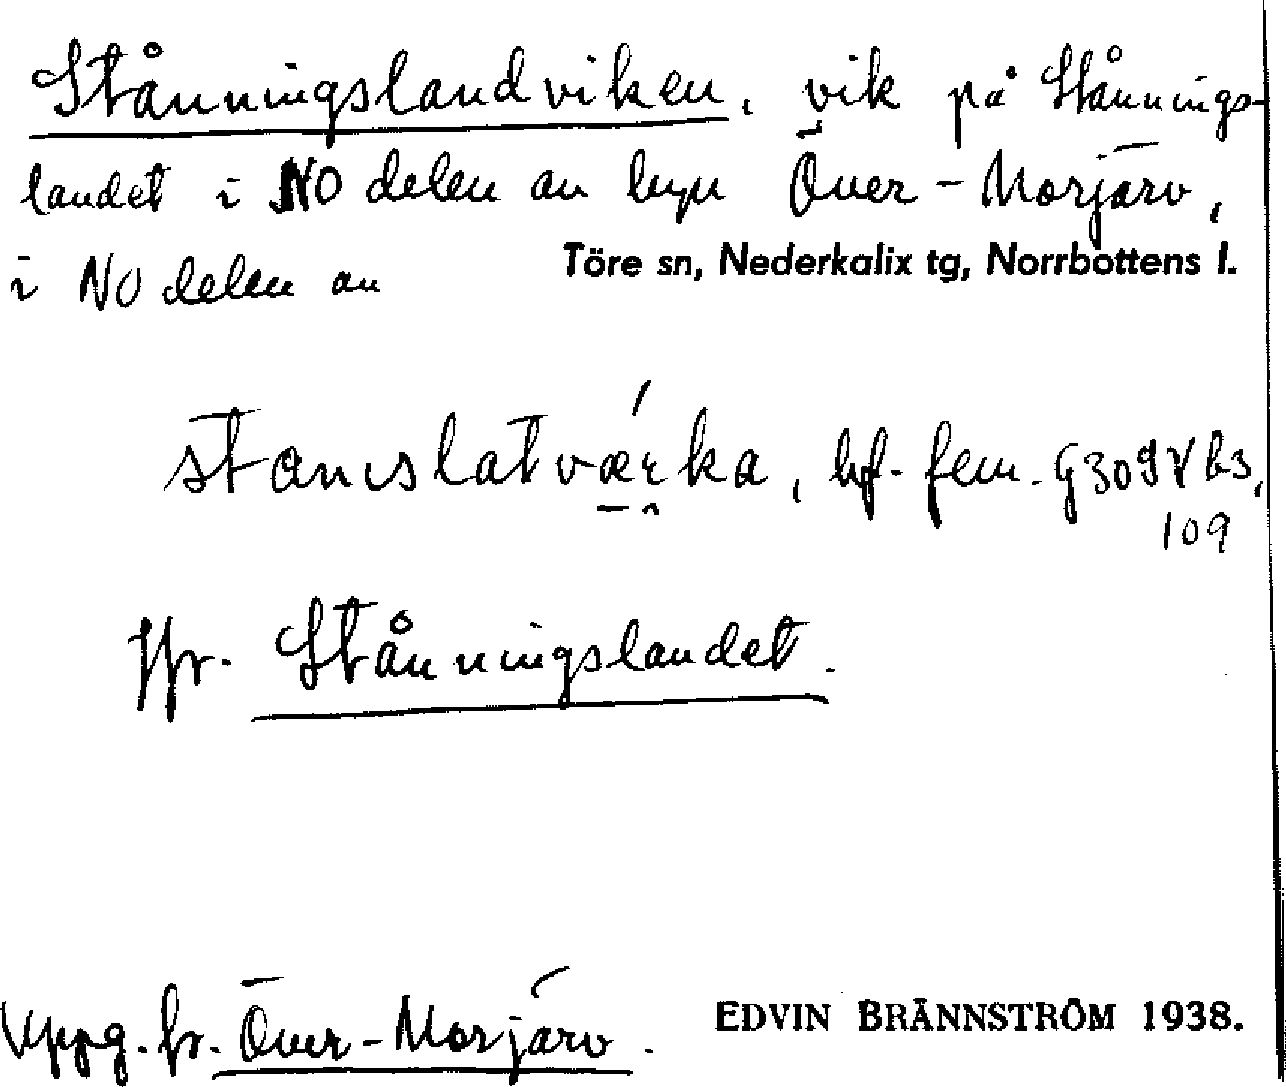 Stånningslandviken, vik på Stånnings-
landet i NO delen av byn Över-Morjärv,
i NO delen av Töre sn, Nederkalix tg, Norrbottens l.
bf. fem.
109
Jfr. Stånningslandet.
Uppg. fr. Över-Morjärv.
EDVIN BRÄNNSTRÖM 1938.